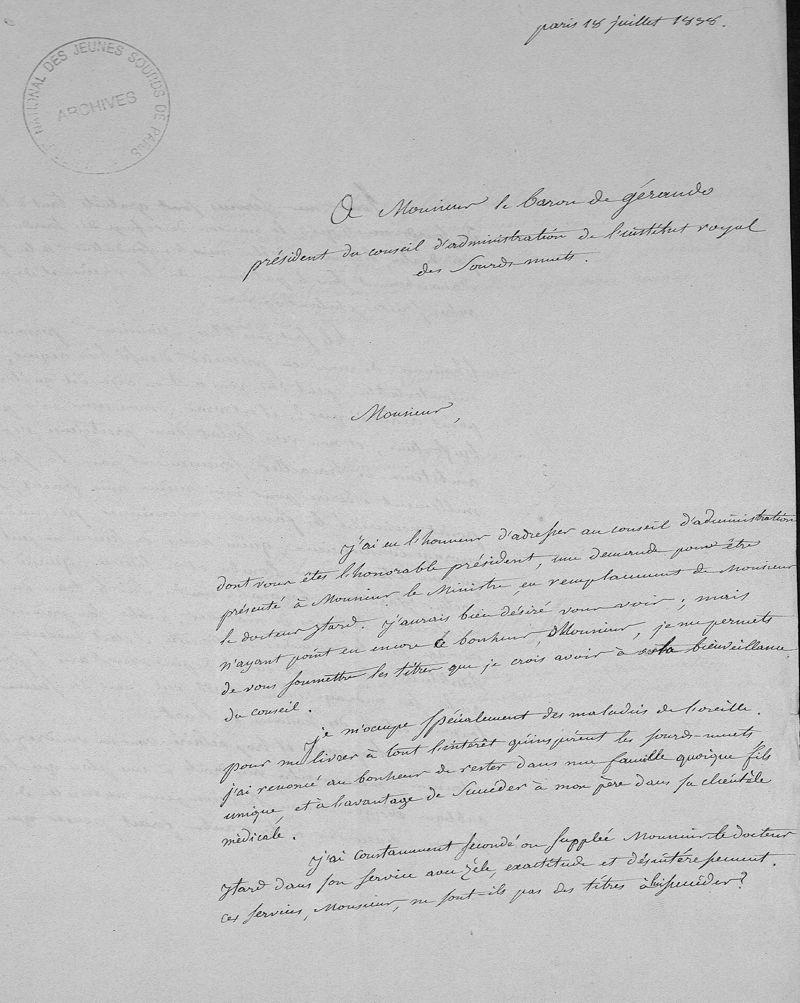 paris 18 juillet 1838.
NATIONAL DES JEUNES SOURDS DE PARIS
ARCHIVES
A Monsieur le baron de gérando
président du conseil d'administration de l'institut royal
des Sourds-muets.
Monsieur,
j'ai eu l'honneur d'adresser au conseil d'administration
dont vous êtes l'honorable président, une demande pour être
présenté à Monsieur le Ministre, en remplacement de Monsieur
le docteur ytard. j'aurais bien désiré vous voir; mais
n'ayant point eu encore ce bonheur, Monsieur, je me permets
de vous soumettre les titres que je crois avoir à la bienveillance
du conseil.
je m'occupe spécialement des maladies de l'oreille.
pour me livrer à tout l'intérêt qu'inspirent les sourds-muets
j'ai renoncé au bonheur de rester dans ma famille quoique fils
unique, et à l'avantage de succéder à mon père dans sa clientèle
médicale.
j'ai constamment secondé ou suppléé Monsieur le docteur
ytard dans son service avec zèle, exactitude et désintéressement.
ces services, Monsieur, ne sont-ils pas des titres à lui succéder?